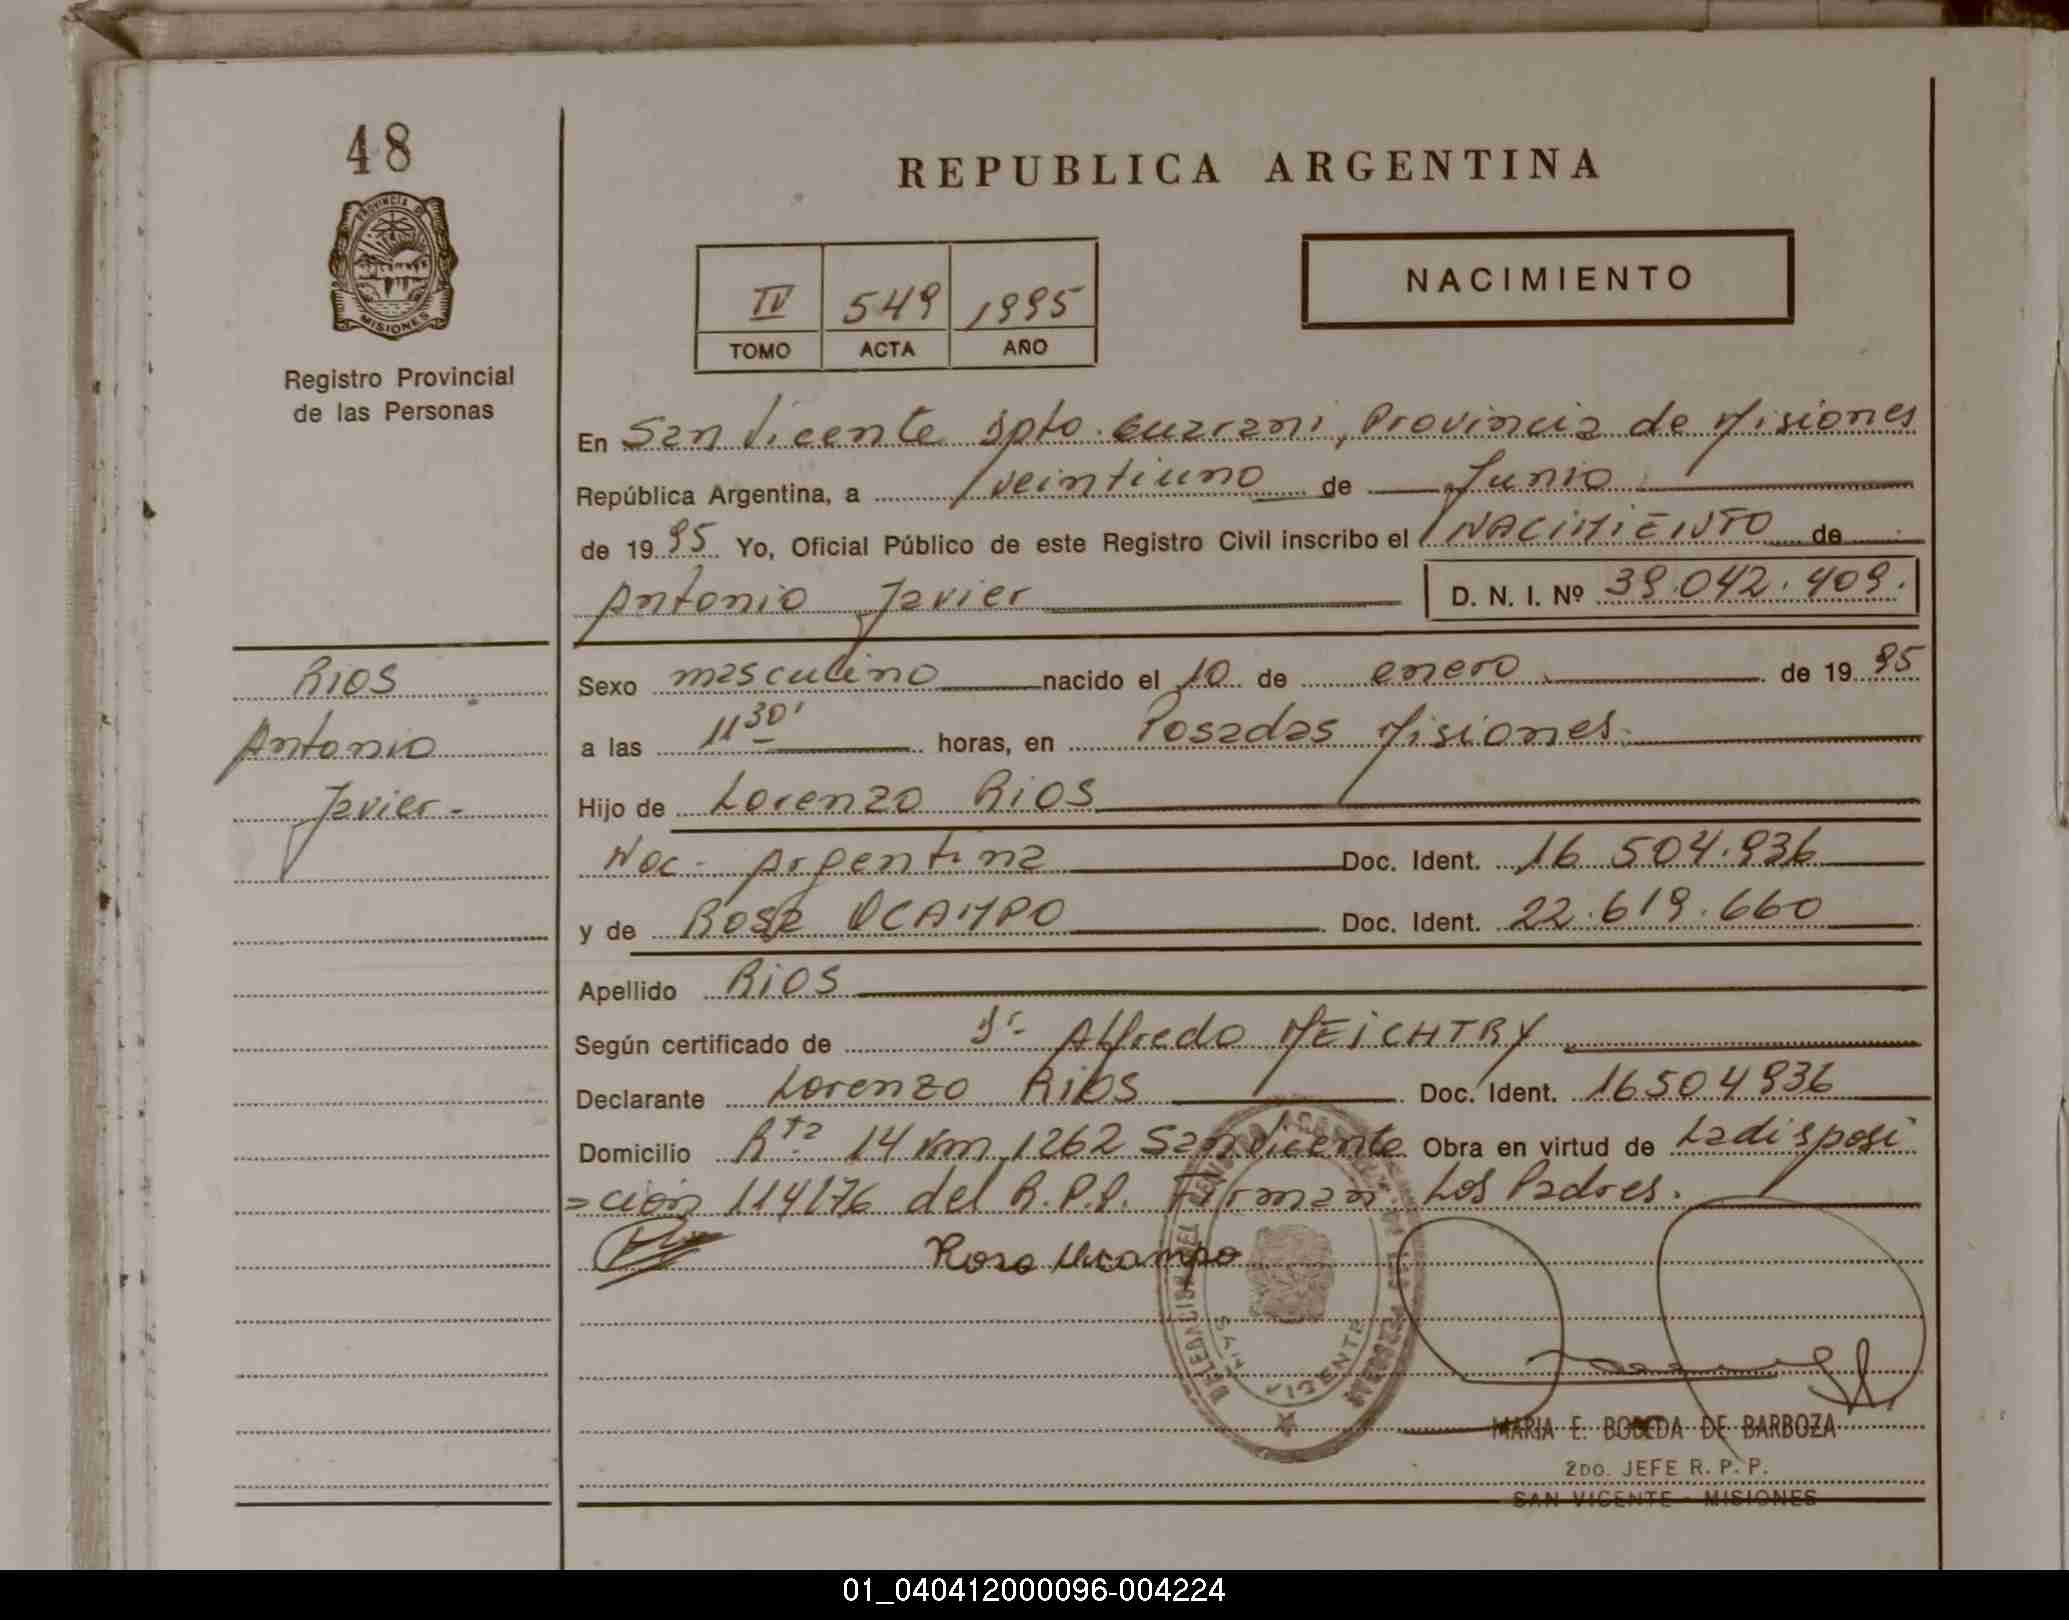 48
REPUBLICA ARGENTINA
PROVINCIA DE
MISIONES
Registro Provincial
de las Personas
NACIMIENTO
IV 549 1995
TOMO ACTA AÑO
En San Vicente Dpto. Guarani, Provincia de Misiones
República Argentina, a veintiuno de Junio
de 1995 Yo, Oficial Público de este Registro Civil inscribo el NACIMIENTO de
Antonio Javier D. N. I. Nº 39.042.409.
RIOS
Antonio
Javier.-
Sexo masculino nacido el 10 de enero de 1995
a las 11 30' horas, en Posadas Misiones.
Hijo de Lorenzo RIOS
Nac. Argentina Doc. Ident. 16 504.936
y de Rosa OCAMPO Doc. Ident. 22.619.660
Apellido RIOS
Según certificado de Dr. Alfredo MEICHTRY
Declarante Lorenzo RIOS Doc. Ident. 16504936
Domicilio Rta 14 Km 1262 San Vicente Obra en virtud de La disposi
=ción 114/76 del R.P.P. Firman Los Padres.
Rosa Ocampo
SAN VICENTE
MARIA E. BOBEDA DE BARBOZA
2DO. JEFE R. P. P.
SAN VICENTE - MISIONES
01_040412000096-004224